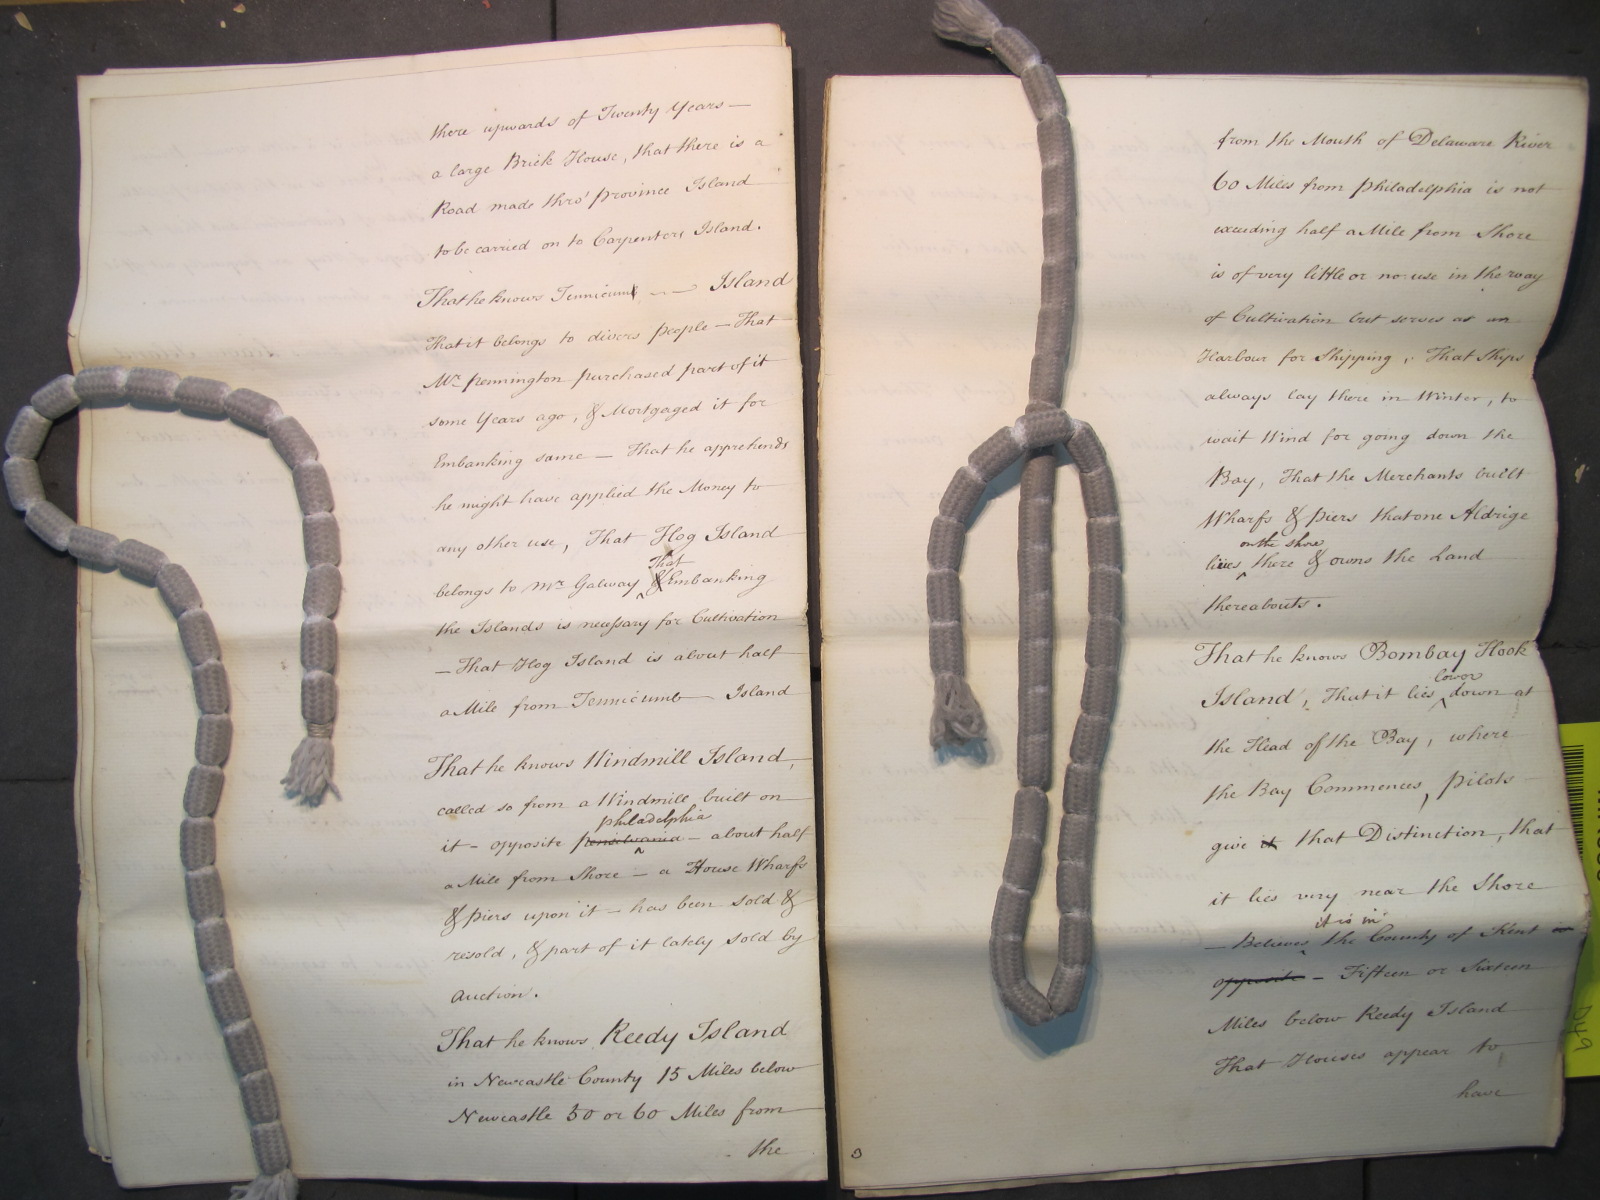 there upwards of Twenty Years —
a large Brick House, that there is a
Road made thro' Province Island
to be carried on to Carpenters Island.
That he knows Tennicumb — — Island
That it belongs to divers people — That
Mr. Pennington purchased part of it
some Years ago, & Mortgaged it for
Embanking same — That he apprehends
he might have applied the Money to
any other use, That Hog Island
That
belongs to Mr. Galway & Embanking
the Islands is necessary for Cultivation
— That Hog Island is about half
a Mile from Tennicumb Island
That he knows Windmill Island,
called so from a Windmill built on
Philadelphia
it – opposite Pensilvania – about half
a Mile from Shore – a House Wharfs
& Piers upon it – has been sold &
resold, & part of it lately sold by
Auction.
That he knows Reedy Island
in Newcastle County 15 Miles below
Newcastle 50 or 60 Miles from
the
from the Mouth of Delaware River
60 Miles from Philadelphia is not
exceeding half a Mile from Shore
is of very little or no use in the way
of Cultivation but serves as an
Harbour for Shipping, That Ships
always lay there in Winter, to
wait Wind for going down the
Bay, That the Merchants built
Wharfs & Piers that one Aldrige
on the shore
lives there & owns the Land
thereabouts.
That he knows Bombay Hook
lower
Island, That it lies down at
the Head of the Bay, where
the Bay Commences, Pilots
give it that Distinction, that
it lies very near the Shore
it is in
— Believes the County of Kent in
opposite – Fifteen or Sixteen
Miles below Reedy Island
That Houses appear to
have
3